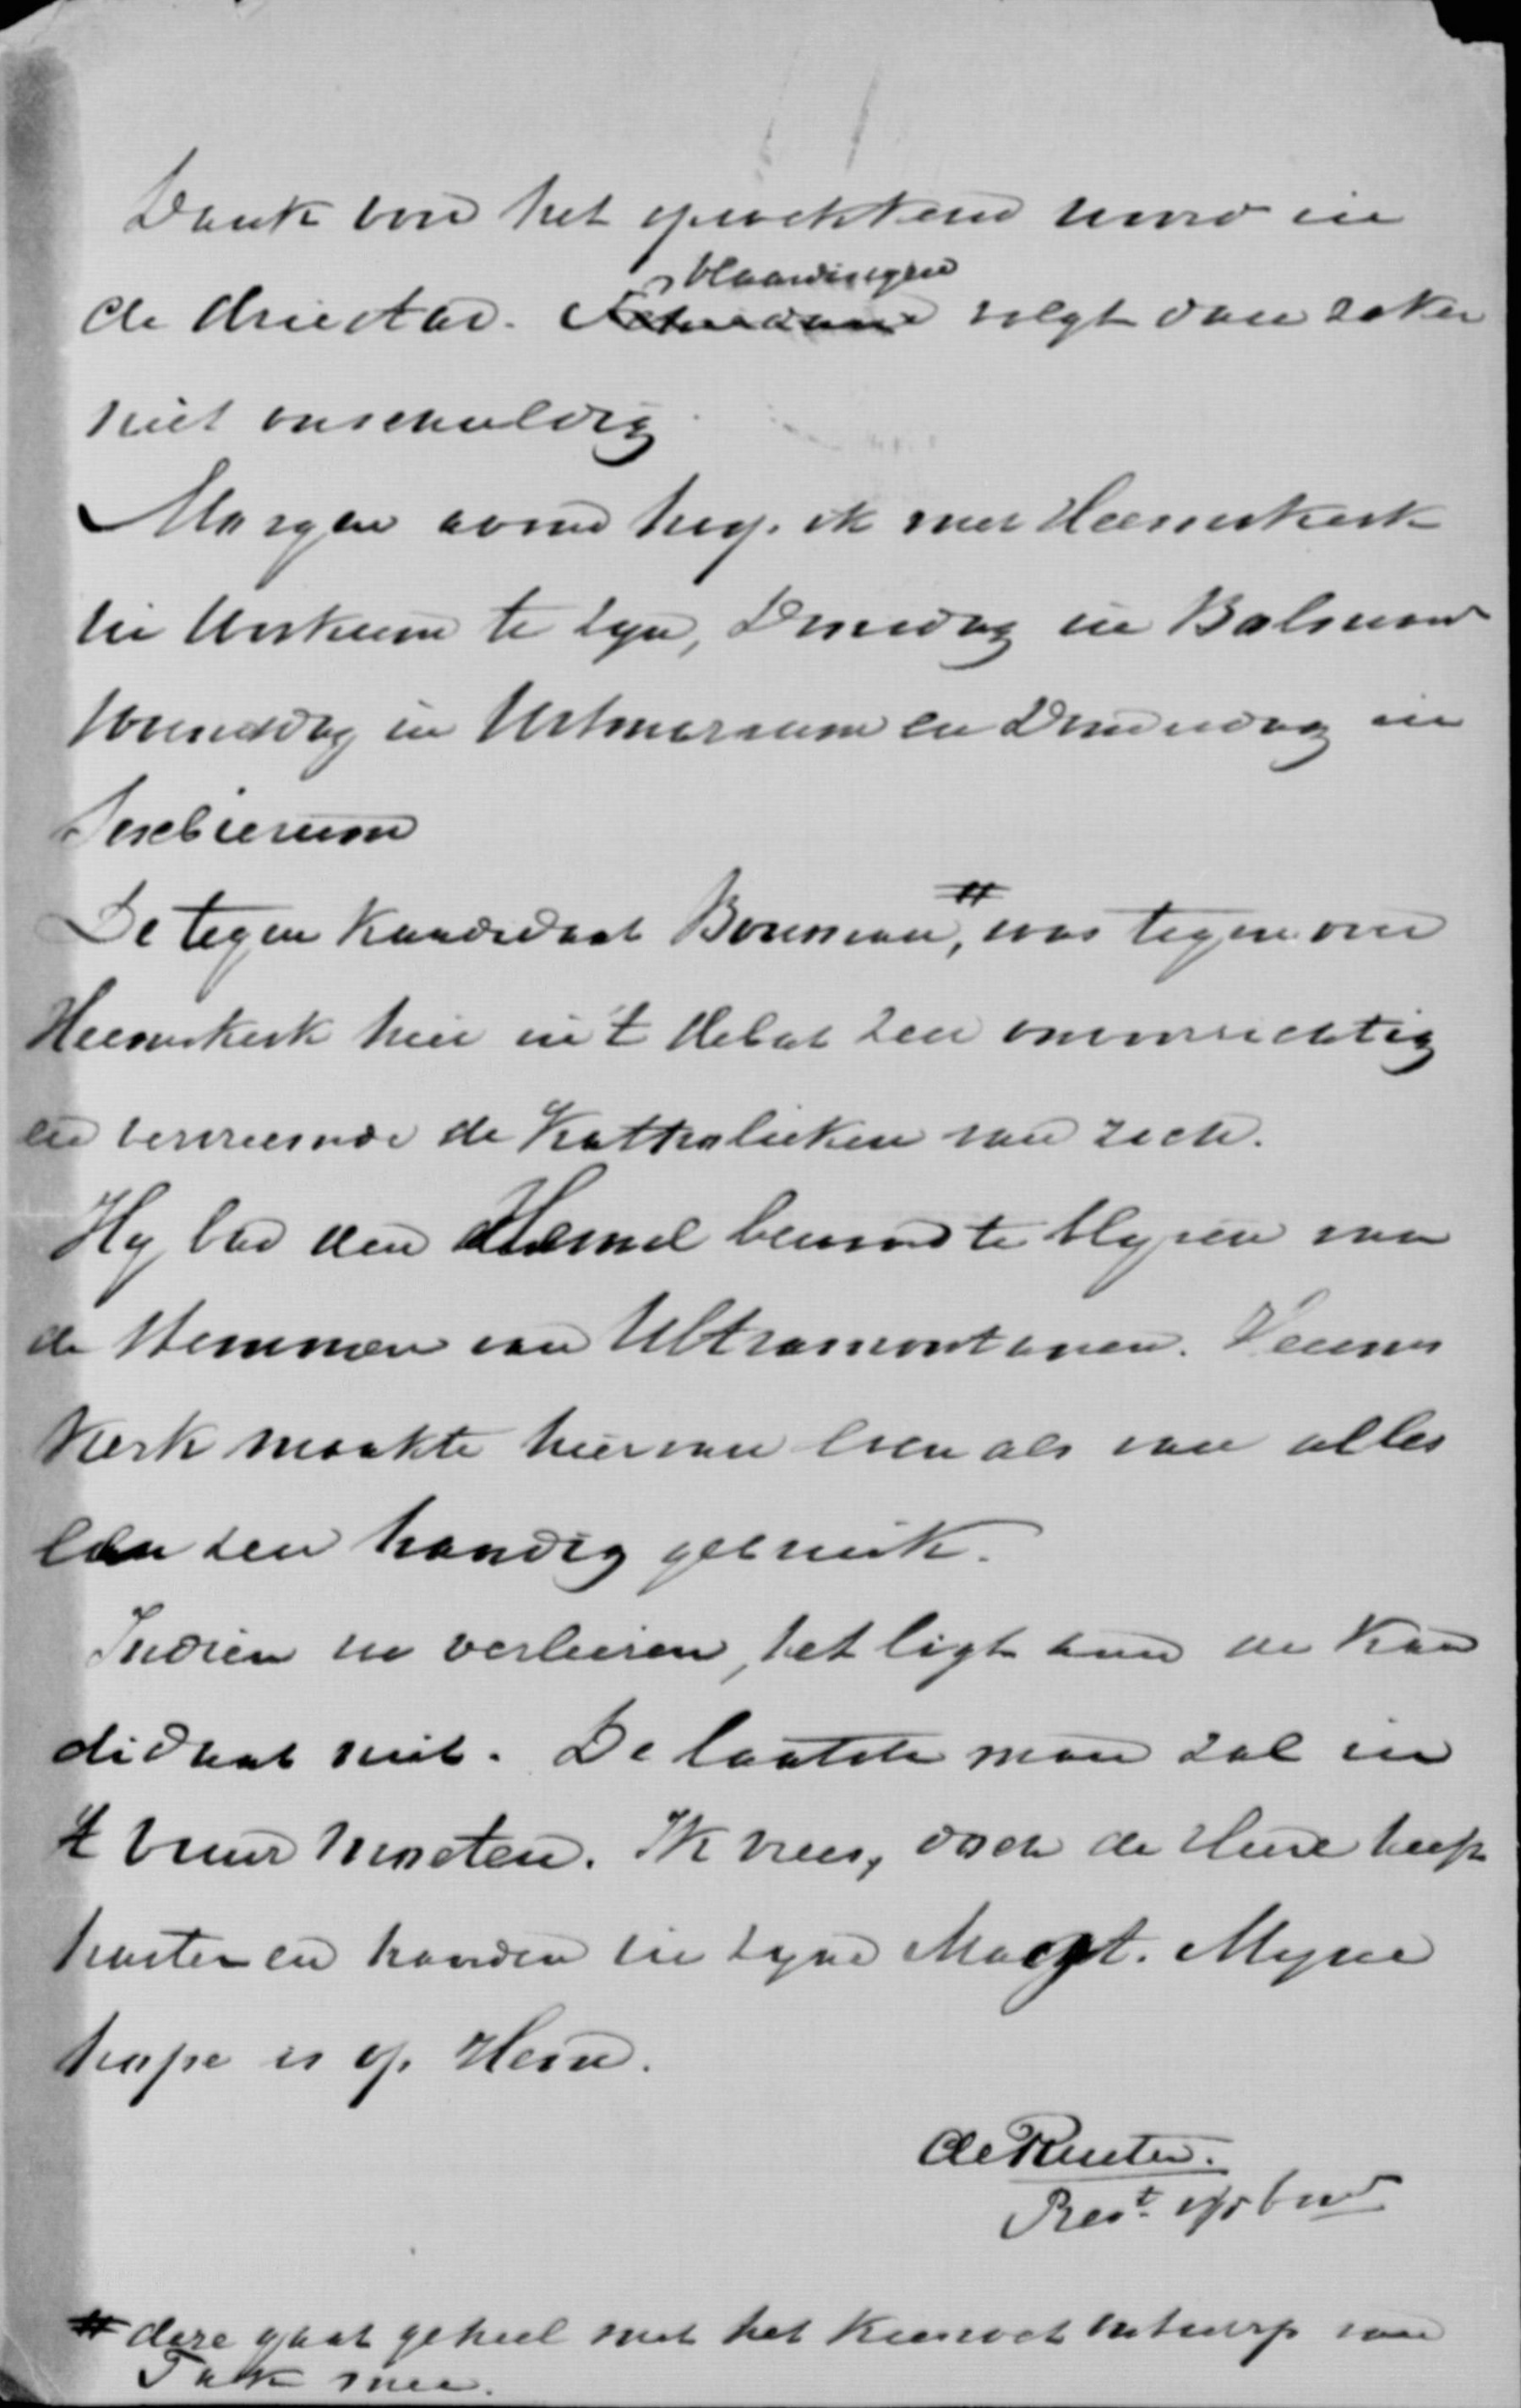 Dank voor het opwekkend woord in
Vlaardingen
de driestar. Schiedam volgt dan zeker
niet onschuldig
Morgen avond hoop ik met Heemskerk
in Workum te zyn, Dinsdag in Bolsward
Woensdag in Witmarsum en Donderdag in
Sexbierum
De tegen kandidaat Bouman, # was tegenover
Heemskerk hier in 't debat zeer onvoorzichtig
en vervreemde de Katholieken van zich.
Hy bad den Hemel bewaard te blyven van
de stemmen van Ultramontanen. Heems
kerk maakte hiervan even als van alles
een zeer handig gebruik.
Indien we verliezen, het ligt aan de kan
didaat niet. De laatste man zal in
't vuur moeten. Ik vrees, doch de Heere heeft
harten en handen in zyne Macht. Myne
hope is op Hem.
de Ruiter.
Prest.
# deze gaat geheel met het kieswet ontwerp van
Tak mee.